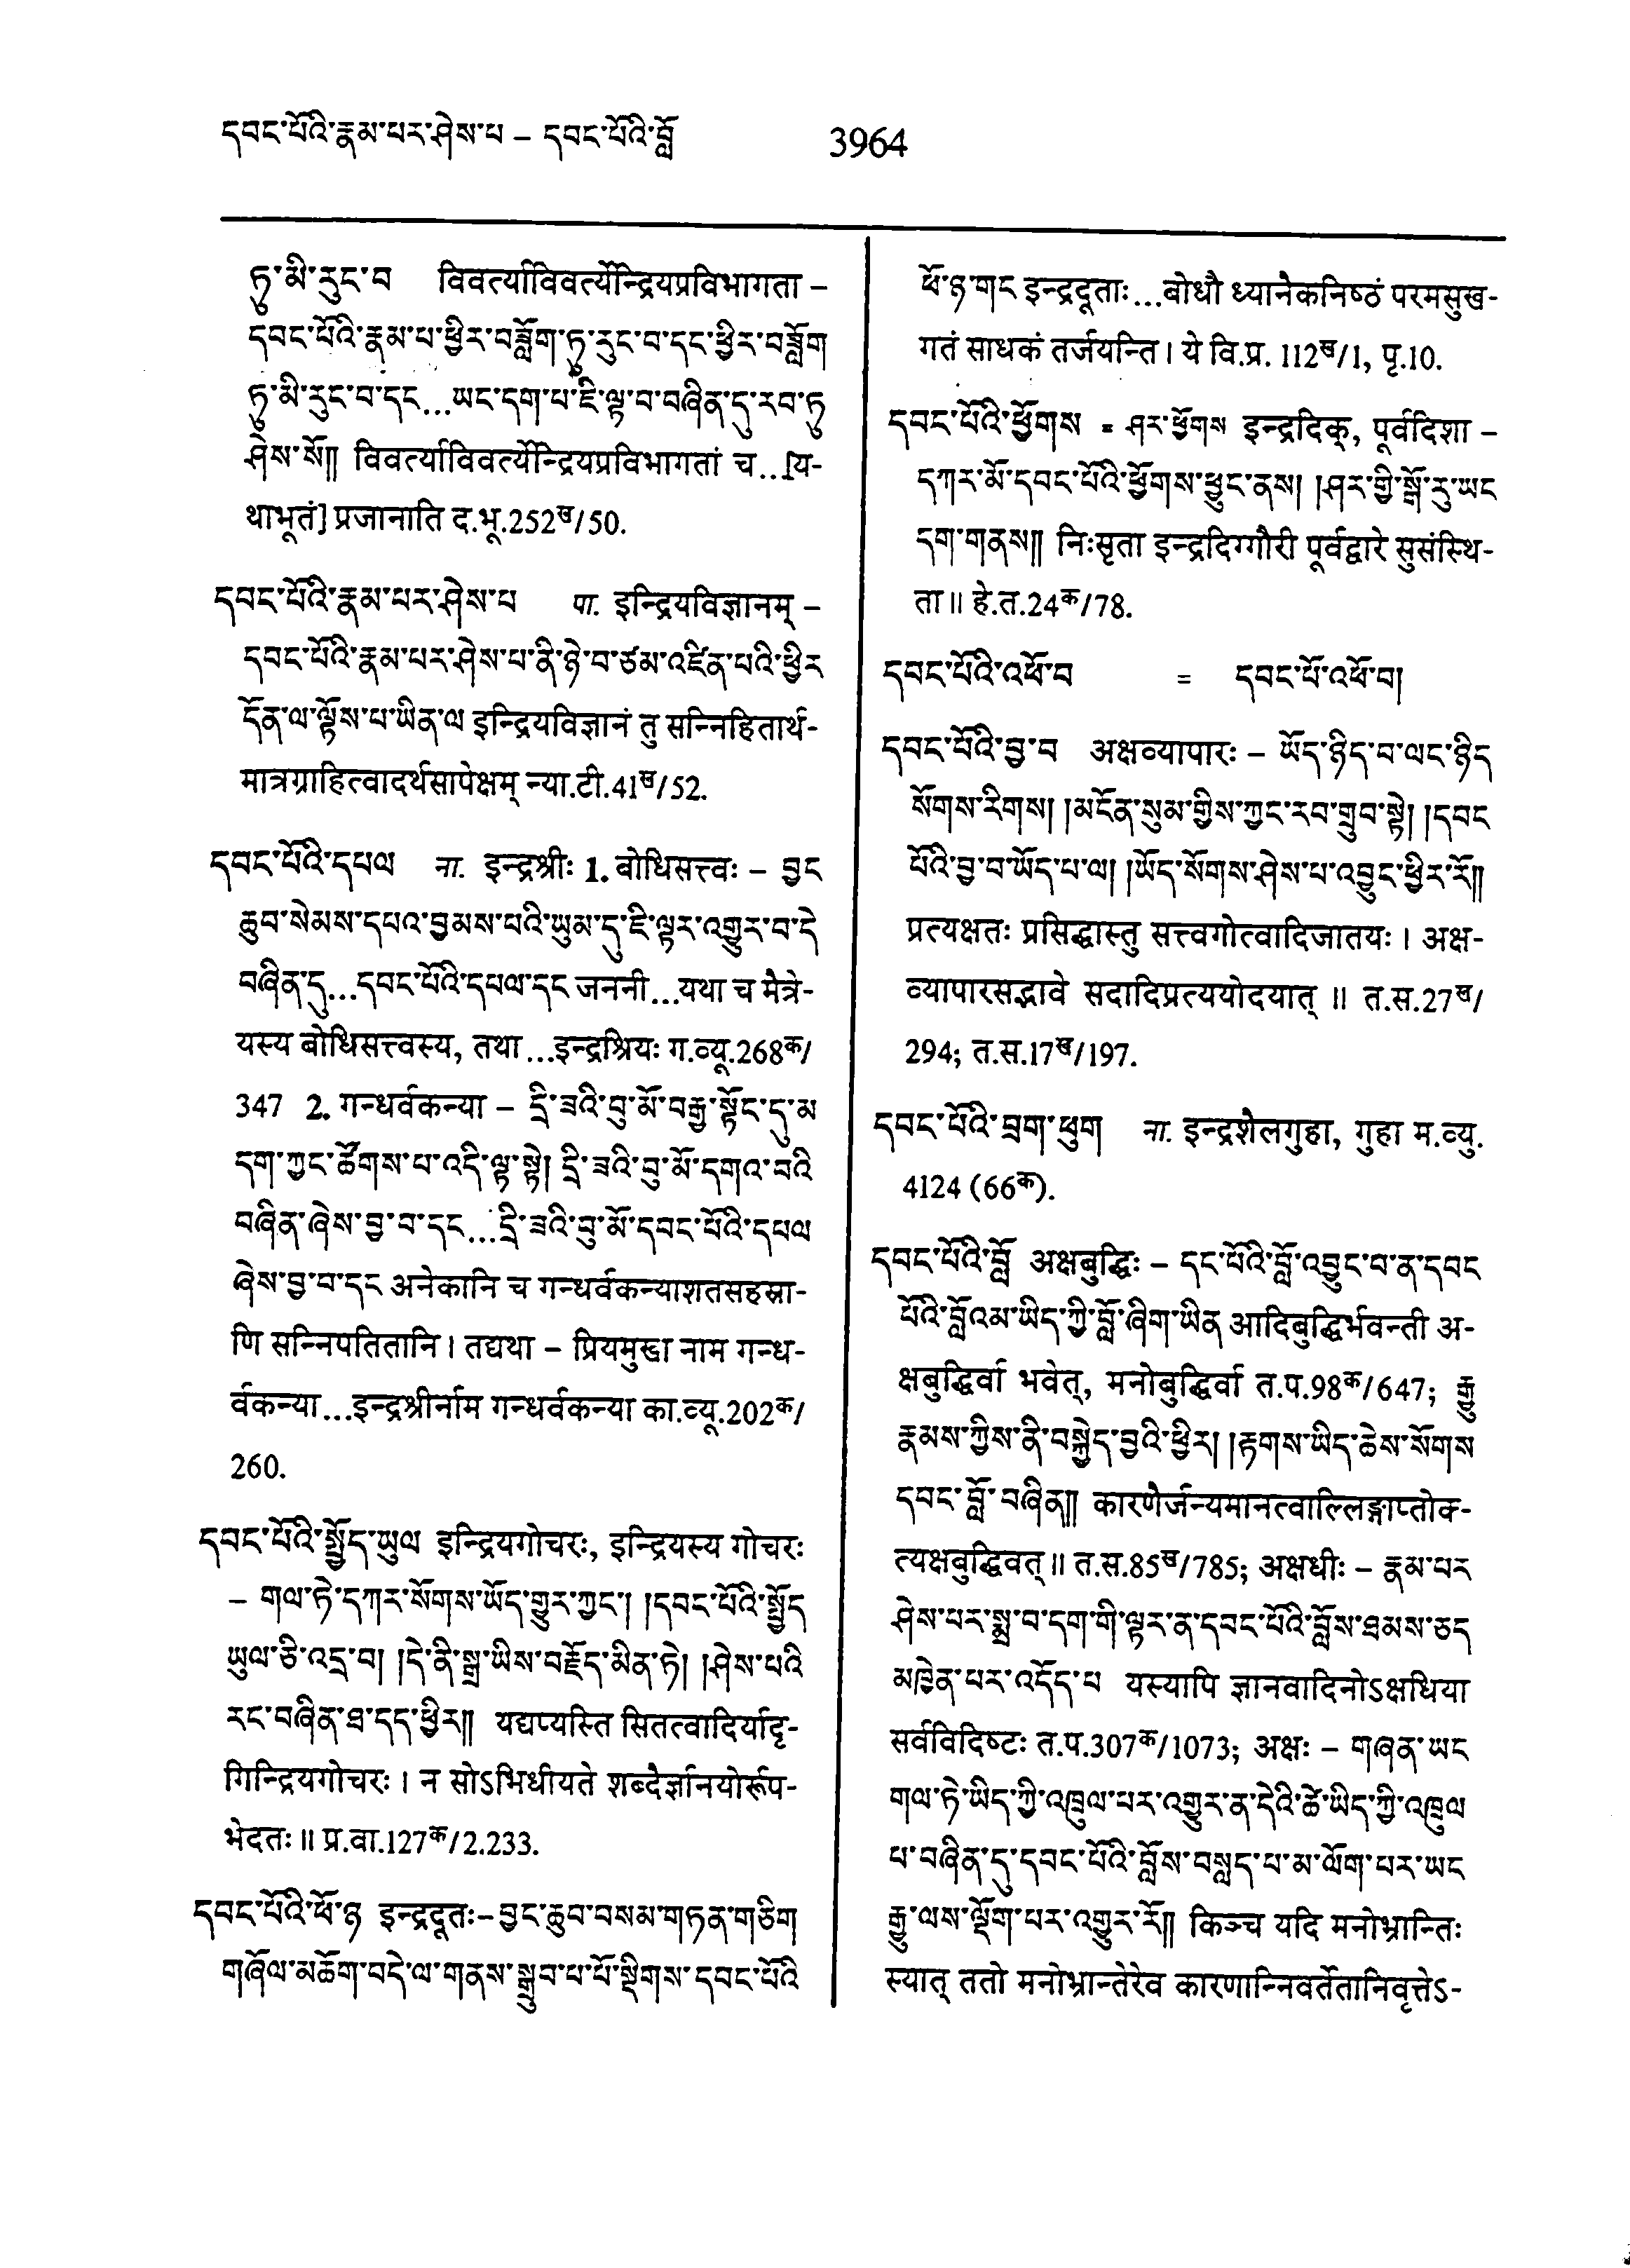 དབང་པོའི་རྣམ་པར་ཤེས་པ – དབང་པོའི་བློ
3964
ཏུ་མི་རུང་བ विवर्त्याविवर्त्येन्द्रियप्रविभागता –
དབང་པོའི་རྣམ་པ་ཕྱིར་བཟློག་ཏུ་རུང་བ་དང་ཕྱིར་བཟློག
ཏུ་མི་རུང་བ་དང...ཡང་དག་པ་ཇི་ལྟ་བ་བཞིན་དུ་རབ་ཏུ
ཤེས་སོ༎ विवर्त्याविवर्त्येन्द्रियप्रविभागतां च...[य-
थाभूतं] प्रजानाति द.भू.252ख/50.
དབང་པོའི་རྣམ་པར་ཤེས་པ पा. इन्द्रियविज्ञानम् –
དབང་པོའི་རྣམ་པར་ཤེས་པ་ནི་ཉེ་བ་ཙམ་འཛིན་པའི་ཕྱིར
དོན་ལ་ལྟོས་པ་ཡིན་ལ इन्द्रियविज्ञानं तु सन्निहितार्थ-
मात्रग्राहित्वादर्थसापेक्षम् न्या.टी.41ख/52.
དབང་པོའི་དཔལ ना. इन्द्रश्रीः 1. बोधिसत्त्वः – བྱང
ཆུབ་སེམས་དཔའ་བྱམས་པའི་ཡུམ་དུ་ཇི་ལྟར་འགྱུར་བ་དེ
བཞིན་དུ...དབང་པོའི་དཔལ་དང जननी...यथा च मैत्रे-
यस्य बोधिसत्त्वस्य, तथा...इन्द्रश्रियः ग.व्यू.268क/
347 2. गन्धर्वकन्या – དྲི་ཟའི་བུ་མོ་བརྒྱ་སྟོང་དུ་མ
དག་ཀྱང་ཚོགས་པ་འདི་ལྟ་སྟེ། དྲི་ཟའི་བུ་མོ་དགའ་བའི
བཞིན་ཞེས་བྱ་བ་དང...དྲི་ཟའི་བུ་མོ་དབང་པོའི་དཔལ
ཞེས་བྱ་བ་དང अनेकानि च गन्धर्वकन्याशतसहस्रा-
णि सन्निपतितानि। तद्यथा – प्रियमुखा नाम गन्ध-
र्वकन्या...इन्द्रश्रीर्नाम गन्धर्वकन्या का.व्यू.202क/
260.
དབང་པོའི་སྤྱོད་ཡུལ इन्द्रियगोचरः, इन्द्रियस्य गोचरः
– གལ་ཏེ་དཀར་སོགས་ཡོད་གྱུར་ཀྱང་། །དབང་པོའི་སྤྱོད
ཡུལ་ཅི་འདྲ་བ། །དེ་ནི་སྒྲ་ཡིས་བརྗོད་མིན་ཏེ། །ཤེས་པའི
རང་བཞིན་ཐ་དད་ཕྱིར༎ यद्यप्यस्ति सितत्वादिर्यादृ-
गिन्द्रियगोचरः। न सोऽभिधीयते शब्दैर्ज्ञानयोर्रूप-
भेदतः॥ प्र.वा.127क/2.233.
དབང་པོའི་ཕོ་ཉ इन्द्रदूतः – བྱང་ཆུབ་བསམ་གཏན་གཅིག
གཞོལ་མཆོག་བདེ་ལ་གནས་སྒྲུབ་པ་པོ་སྡིགས་དབང་པོའི
ཕོ་ཉ་གང इन्द्रदूताः...बोधौ ध्यानैकनिष्ठं परमसुख-
गतं साधकं तर्जयन्ति। ये वि.प्र. 112ख/1, पृ.10.
དབང་པོའི་ཕྱོགས = ཤར་ཕྱོགས इन्द्रदिक्, पूर्वदिशा –
དཀར་མོ་དབང་པོའི་ཕྱོགས་ཕྱུང་ནས། །ཤར་གྱི་སྒོ་རུ་ཡང
དག་གནས༎ निःसृता इन्द्रदिग्गौरी पूर्वद्वारे सुसंस्थि-
ता॥ हे.त.24क/78.
དབང་པོའི་འཕོ་བ = དབང་པོ་འཕོ་བ།
དབང་པོའི་བྱ་བ अक्षव्यापारः – ཡོད་ཉིད་བ་ལང་ཉིད
སོགས་རིགས། །མངོན་སུམ་གྱིས་ཀྱང་རབ་གྲུབ་སྟེ། །དབང
པོའི་བྱ་བ་ཡོད་པ་ལ། །ཡོད་སོགས་ཤེས་པ་འབྱུང་ཕྱིར་རོ༎
प्रत्यक्षतः प्रसिद्धास्तु सत्त्वगोत्वादिजातयः। अक्ष-
व्यापारसद्भावे सदादिप्रत्ययोदयात्॥ त.स.27ख/
294; त.स.17ख/197.
དབང་པོའི་བྲག་ཕུག ना. इन्द्रशैलगुहा, गुहा म.व्यु.
4124 (66क).
དབང་པོའི་བློ अक्षबुद्धिः – དང་པོའི་བློ་འབྱུང་བ་ན་དབང
པོའི་བློའམ་ཡིད་ཀྱི་བློ་ཞིག་ཡིན आदिबुद्धिर्भवन्ती अ-
क्षबुद्धिर्वा भवेत्, मनोबुद्धिर्वा त.प.98क/647; རྒྱུ
རྣམས་ཀྱིས་ནི་བསྐྱེད་བྱའི་ཕྱིར། །རྟགས་ཡིད་ཆེས་སོགས
དབང་བློ་བཞིན༎ कारणैर्जन्यमानत्वाल्लिङ्गाप्तोक-
त्यक्षबुद्धिवत्॥ त.स.85ख/785; अक्षधीः – རྣམ་པར
ཤེས་པར་སྨྲ་བ་དག་གི་ལྟར་ན་དབང་པོའི་བློས་ཐམས་ཅད
མཁྱེན་པར་འདོད་པ यस्यापि ज्ञानवादिनोऽक्षधिया
सर्वविदिष्टः त.प.307क/1073; अक्षः – གཞན་ཡང
གལ་ཏེ་ཡིད་ཀྱི་འཁྲུལ་པར་འགྱུར་ན་དེའི་ཚེ་ཡིད་ཀྱི་འཁྲུལ
པ་བཞིན་དུ་དབང་པོའི་བློས་བསླད་པ་མ་ལོག་པར་ཡང
རྒྱུ་ལས་ལྡོག་པར་འགྱུར་རོ༎ किञ्च यदि मनोभ्रान्तिः
स्यात् ततो मनोभ्रान्तेरेव कारणान्निवर्तेतानिवृत्तेऽ-